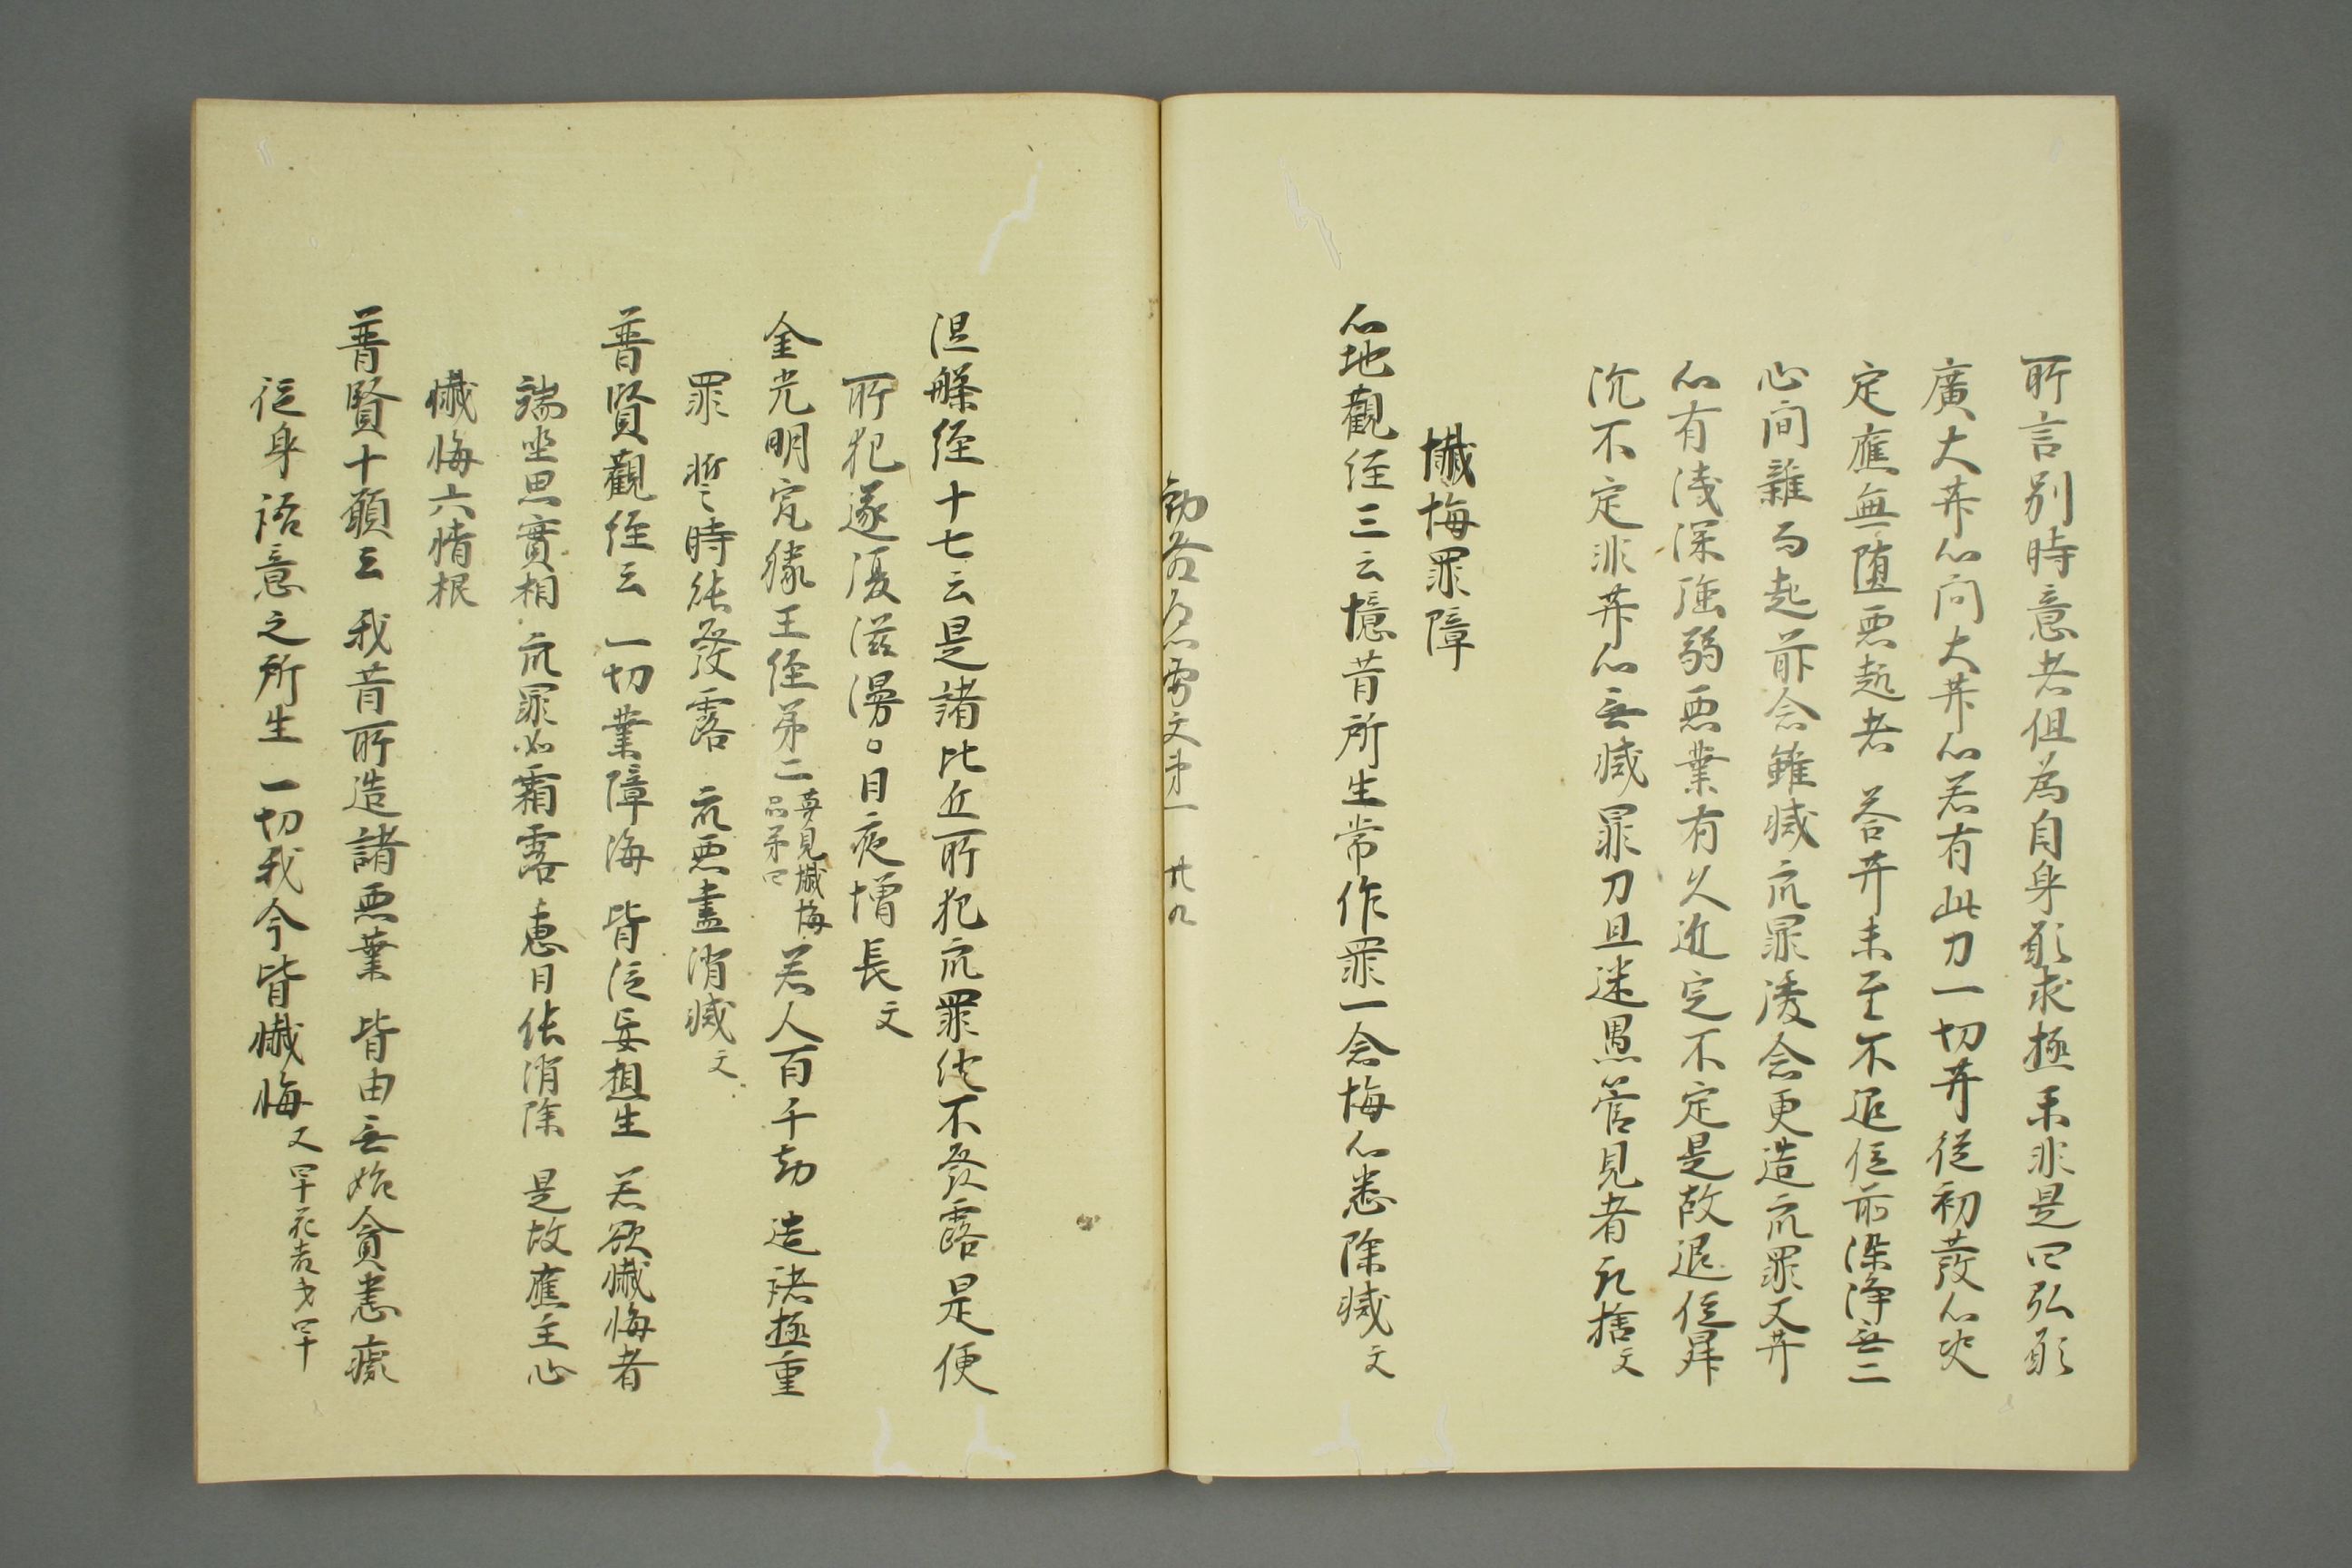 所言別時意者但為自身願求極果非是四弘願
廣大𦬇心問大𦬇心若有此力一切𦬇從初發心决
定應無堕悪趣者 答𦬇未至不退位前染浄無二
心間雜而起前念雖滅衆罪後念更造衆罪又𦬇
心有淺深強弱悪業有久近定不定是故退位昇
沉不定非𦬇心無滅罪力且述愚管見者取捨文
懺悔罪障
心地觀経三云憶昔所生常作罪一念悔心悉除滅文
文第一 廿九
涅槃経十七云是諸比丘所犯衆罪終不發露是便
所犯遂復滋漫。日夜増長文
金光明最勝王経第二夢見懺悔品第四若人百千劫 造諸極重
罪 暫時能發露 衆悪盡消滅文
普賢觀経云 一切業障海 皆従妄想生 若欲懺悔者
端坐思實相 衆罪如霜露 恵日能消除 是故應至心
懺悔六情根
普賢十願云 我昔所造諸悪業 皆由無始貪恚癡
従身語意之所生 一切我今皆懺悔文